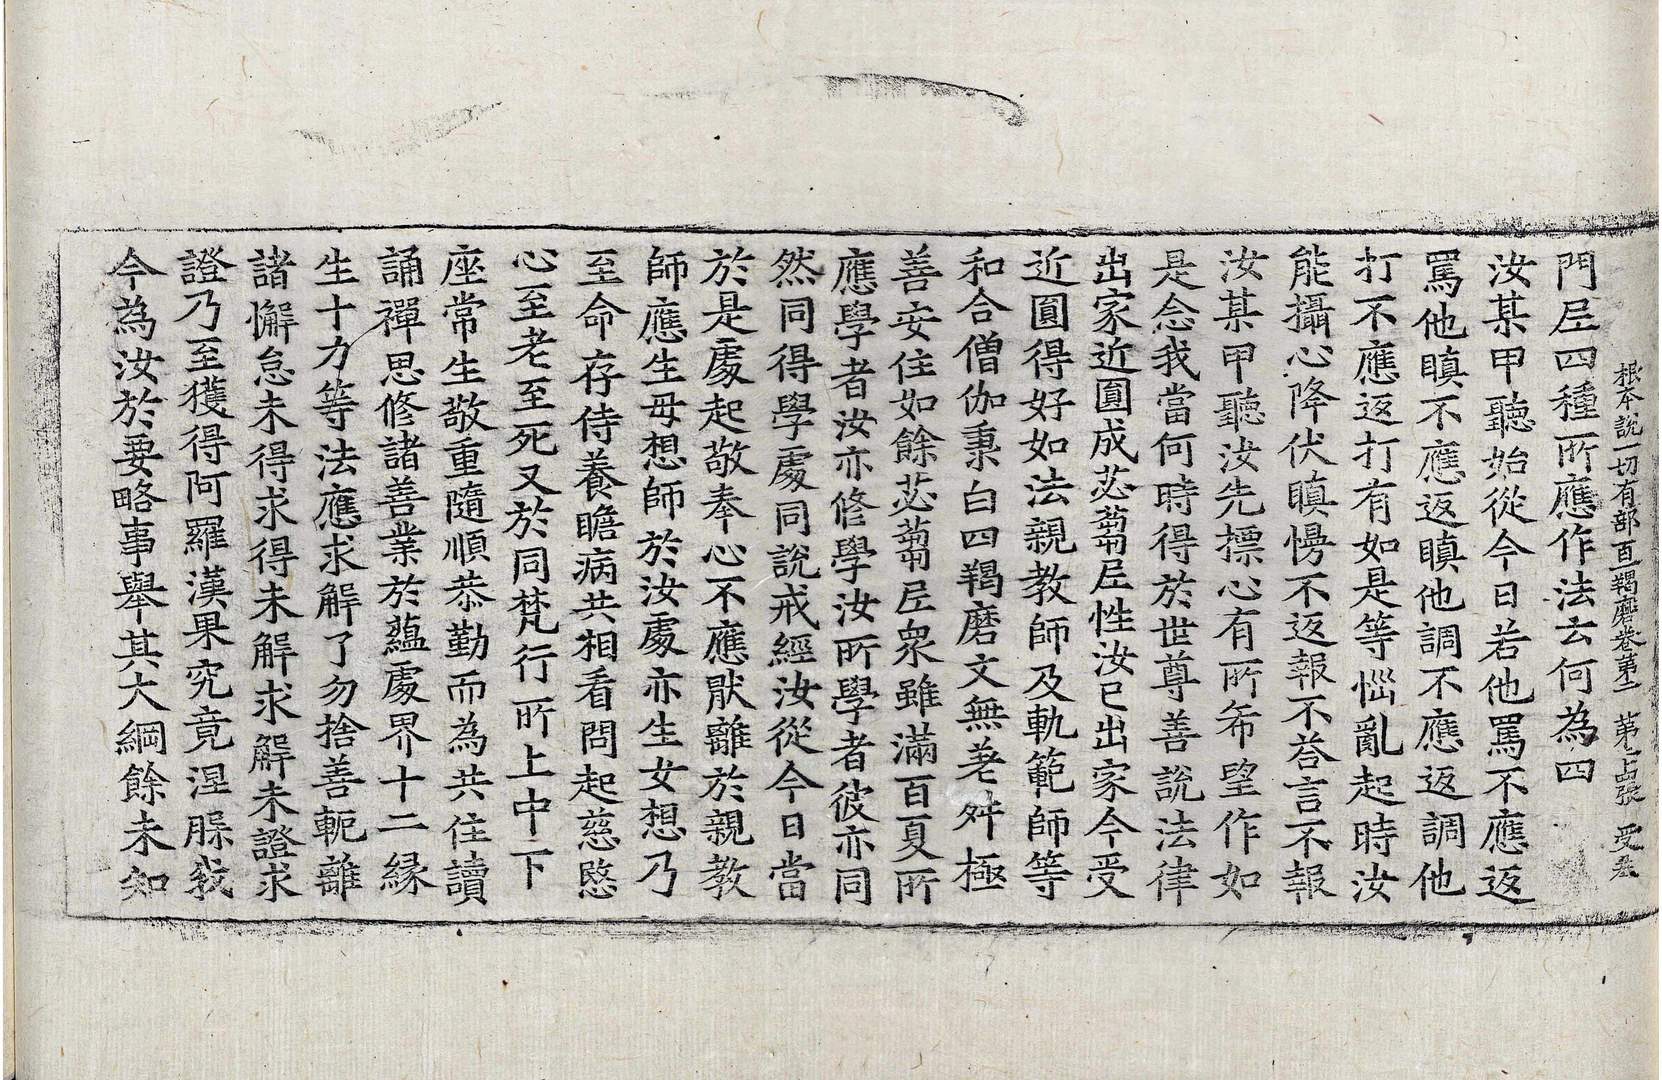 根本說一切有部百一羯磨卷第二 第七張 受
門𡰱四種所應作法云何為四
汝某甲聽始從今日若他罵不應返
罵他瞋不應返瞋他調不應返調他
打不應返打有如是等惱亂起時汝
能攝心降伏瞋慢不返報不荅言不報
汝某甲聽汝先摽心有所希望作如
是念我當何時得於世尊善說法律
出家近圓成苾蒭𡰱性汝已出家今受
近圓得好如法親教師及軌範師等
和合僧伽秉白四羯磨文無差舛極
善安住如餘苾蒭𡰱眾雖滿百夏所
應學者汝亦修學汝所學者彼亦同
然同得學處同說戒經汝從今日當
於是處起敬奉心不應猒離於親教
師應生母想師於汝處亦生女想乃
至命存侍養瞻病共相看問起慈愍
心至老至死又於同梵行所上中下
座常生敬重隨順恭勤而為共住讀
誦禪思修諸善業於蘊處界十二緣
生十力等法應求解了勿捨善軛離
諸懈怠未得求得未解求解未證求
證乃至獲得阿羅漢果究竟涅槃我
今為汝於要略事舉其大綱餘未知